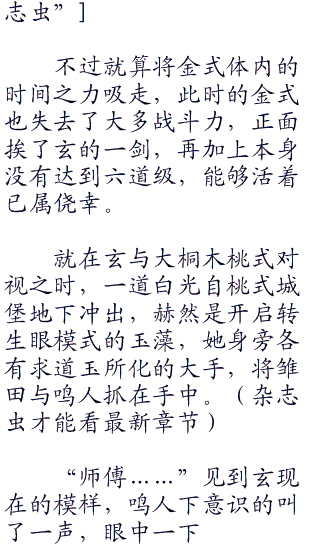 志虫”]
不过就算将金式体内的
时间之力吸走，此时的金式
也失去了大多战斗力，正面
挨了玄的一剑，再加上本身
没有达到六道级，能够活着
已属侥幸。
就在玄与大桐木桃式对
视之时，一道白光自桃式城
堡地下冲出，赫然是开启转
生眼模式的玉藻，她身旁各
有求道玉所化的大手，将雏
田与鸣人抓在手中。（杂志
虫才能看最新章节）
“师傅……”见到玄现
在的模样，鸣人下意识的叫
了一声，眼中一下